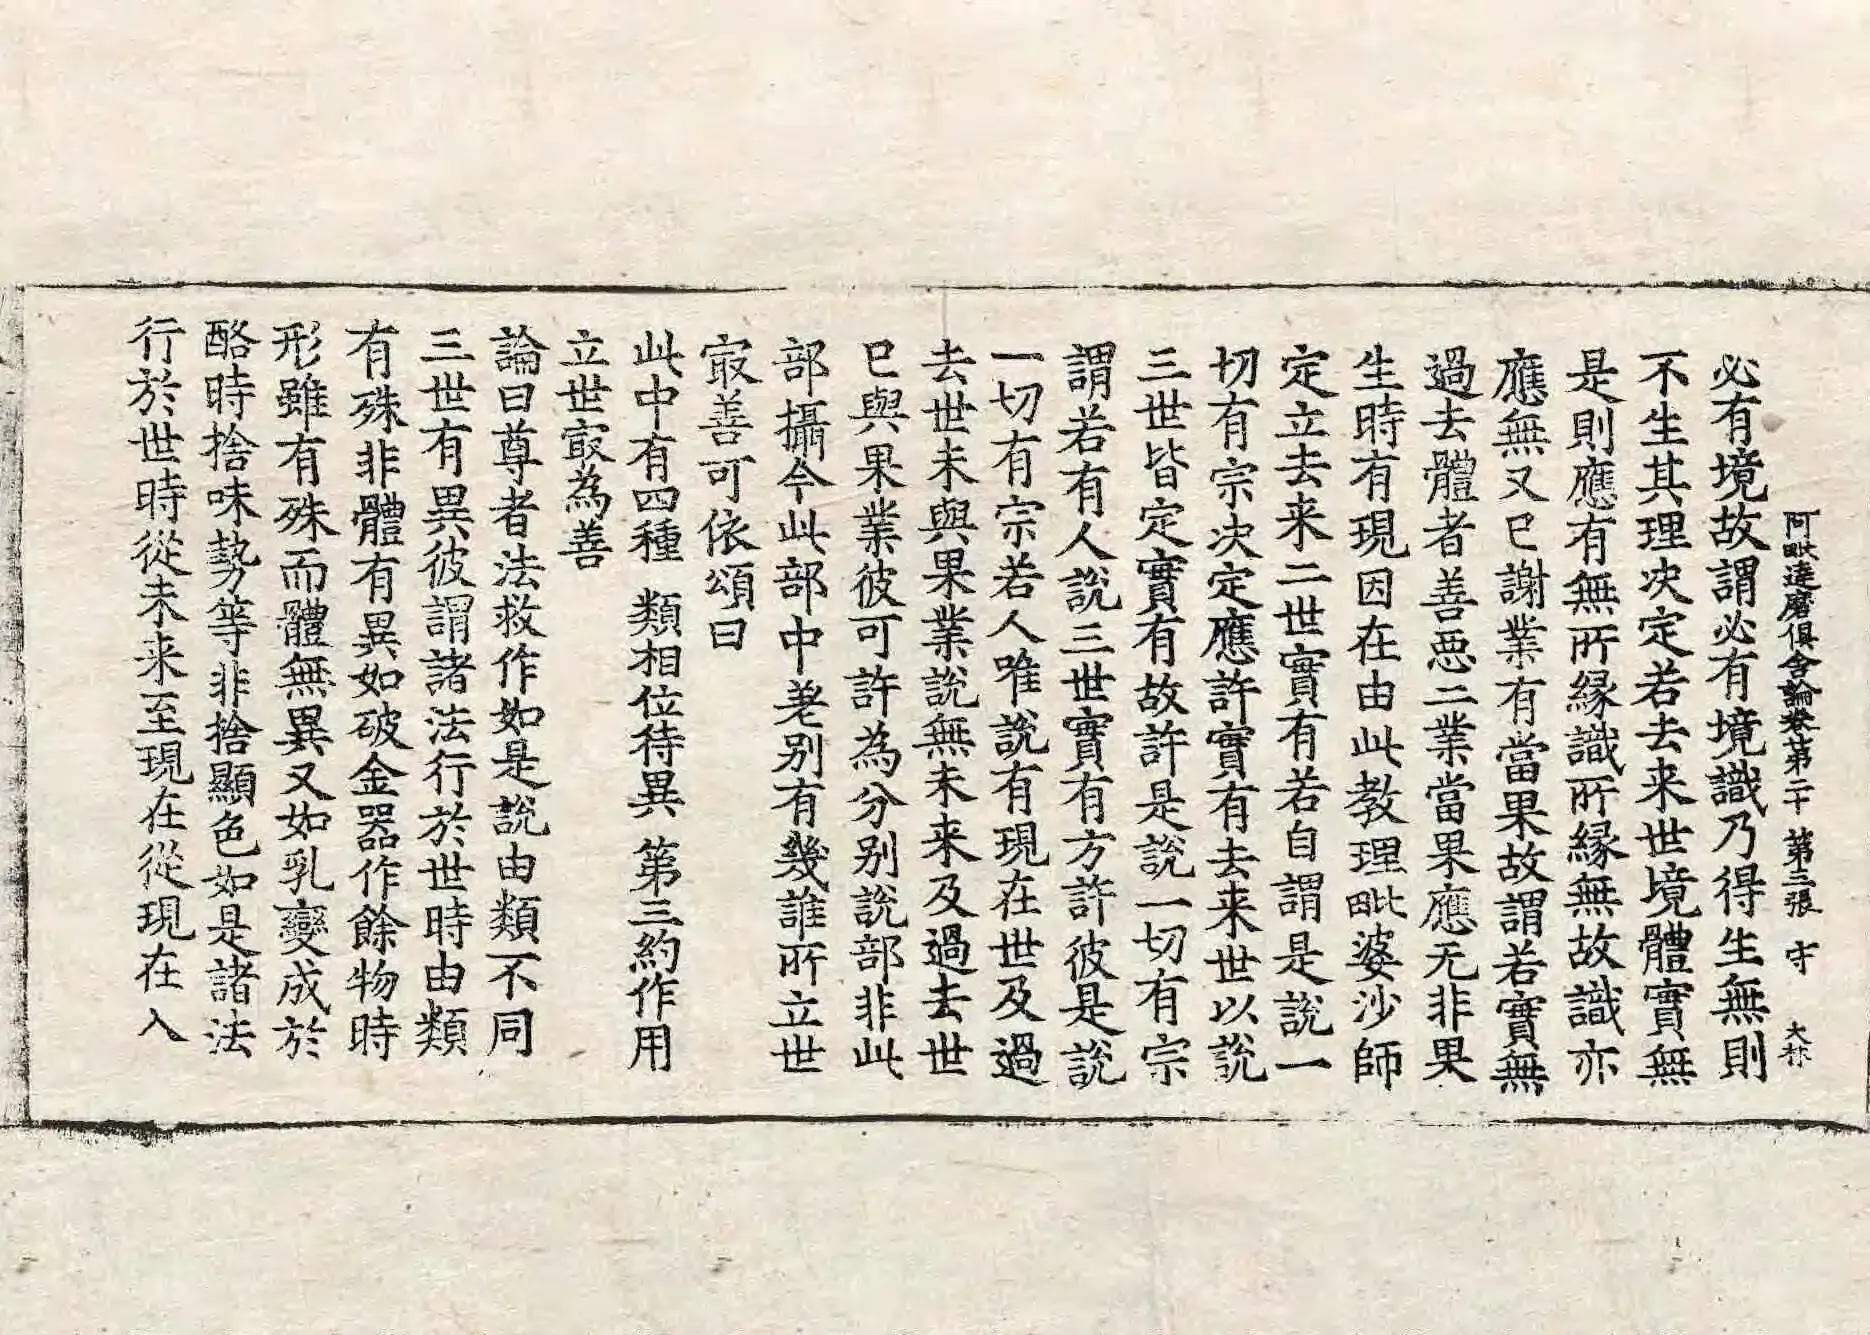 阿毗達磨俱舍論卷第二十 第三張 守 大林
必有境故謂必有境識乃得生無則
不生其理决定若去来世境體實無
是則應有無所縁識所縁無故識亦
應無又已謝業有當果故謂若實無
過去體者善悪二業當果應无非果
生時有現因在由此教理毗婆沙師
定立去来二世實有若自謂是説一
切有宗决定應許實有去来世以説
三世皆定實有故許是説一切有宗
謂若有人説三世實有方許彼是説
一切有宗若人唯説有現在世及過
去世未與果業説無未来及過去世
已與果業彼可許為分别説部非此
部攝今此部中差别有幾誰所立世
㝡善可依頌曰
此中有四種 類相位待異 第三約作用
立世㝡為善
論曰尊者法救作如是説由類不同
三世有異彼謂諸法行於世時由類
有殊非體有異如破金器作餘物時
形雖有殊而體無異又如乳變成於
酪時捨味勢等非捨顯色如是諸法
行於世時從未来至現在從現在入